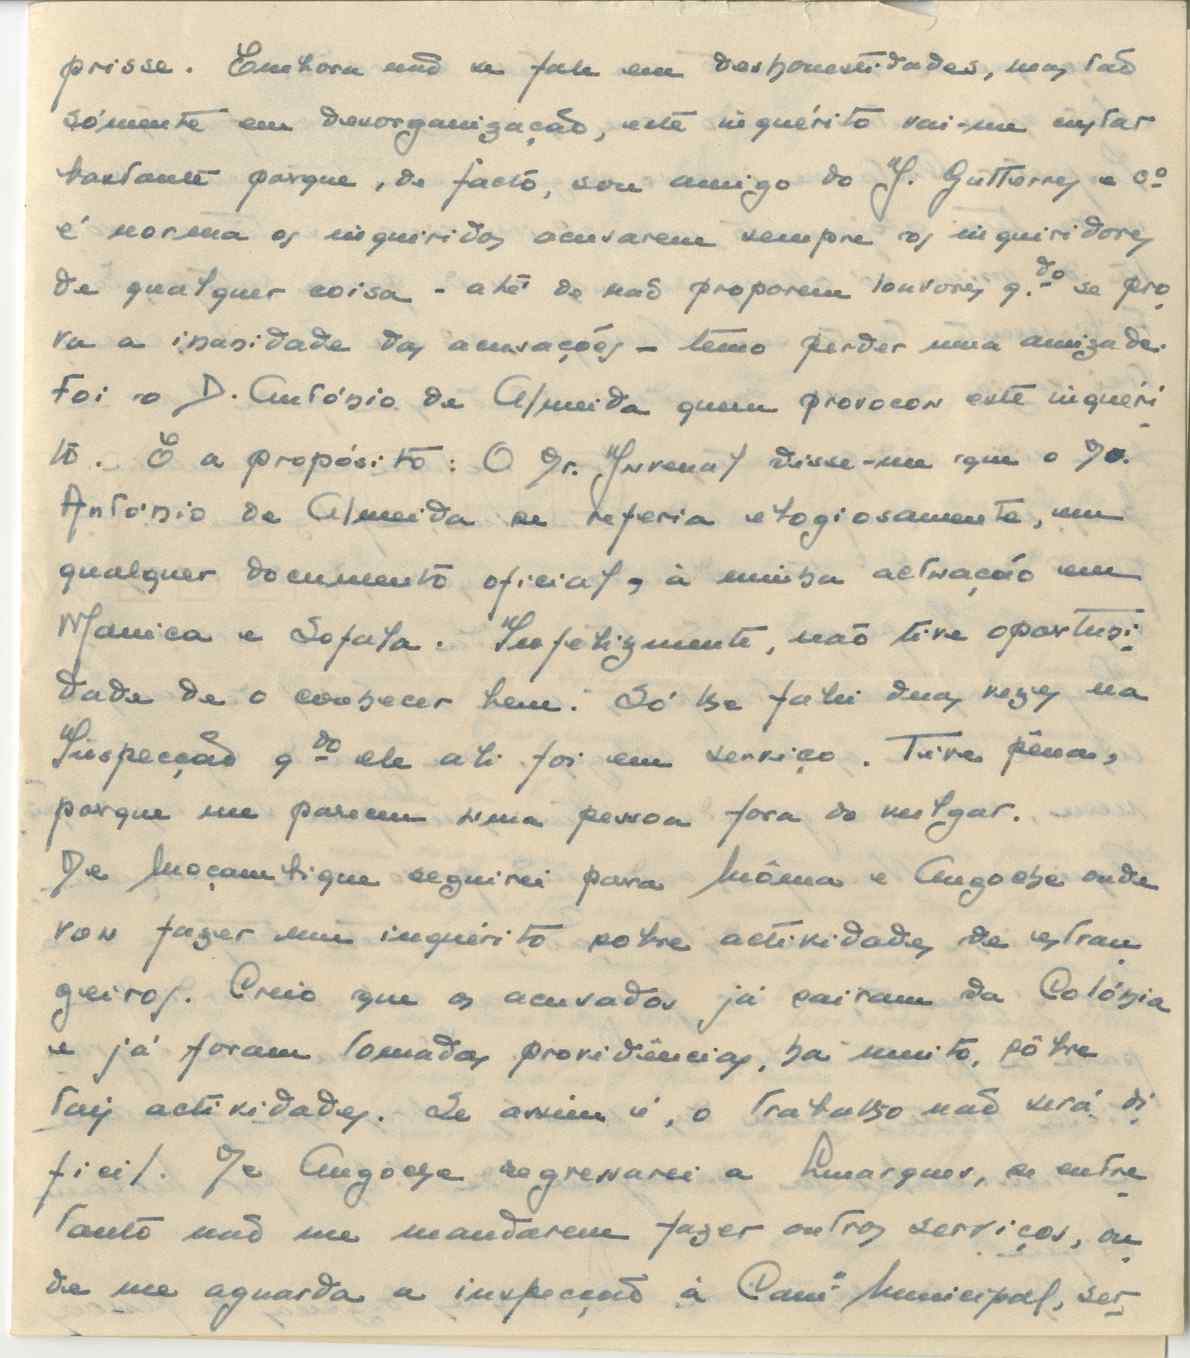 prisse. Embora não se fale em deshonestidades, mas tão
sómente em desorganização, este inquérito vai-me custar
bastante porque, de facto, sou amigo do J. Gutterres e cº
é norma os inquiridos acusarem sempre os inquiridores
de qualquer coisa - até de não proporem louvores q.do se pro
va a inanidade das acusações - temo perder uma amizade.
Foi o D. António de Almeida quem provocou este inquéri
to. E a propósito: O Dr. Juvenal disse-me que o D.
António de Almeida se referia elogiosamente, em
qualquer documento oficial, à minha actuação em
Manica e Sofala. Infelizmente, não tive oportuni
dade de o conhecer bem. Só lhe falei duas vezes na
Inspecção q.do ele ali foi em serviço. Tive pêna,
porque me pareceu uma pessoa fora do vulgar.
De Moçambique seguirei para Môma e Angoche onde
vou fazer um inquérito sobre actividades de estran
geiros. Creio que os acusados já sairam da Colónia
e já foram tomadas providências, há muito, sôbre
tais actividades. Se assim é, o trabalho não será di
ficil. De Angoche regressarei a Lmarques, se entre
tanto não me mandarem fazer outros serviços, on
de me aguarda a inspecção à Camª Municipal, ser